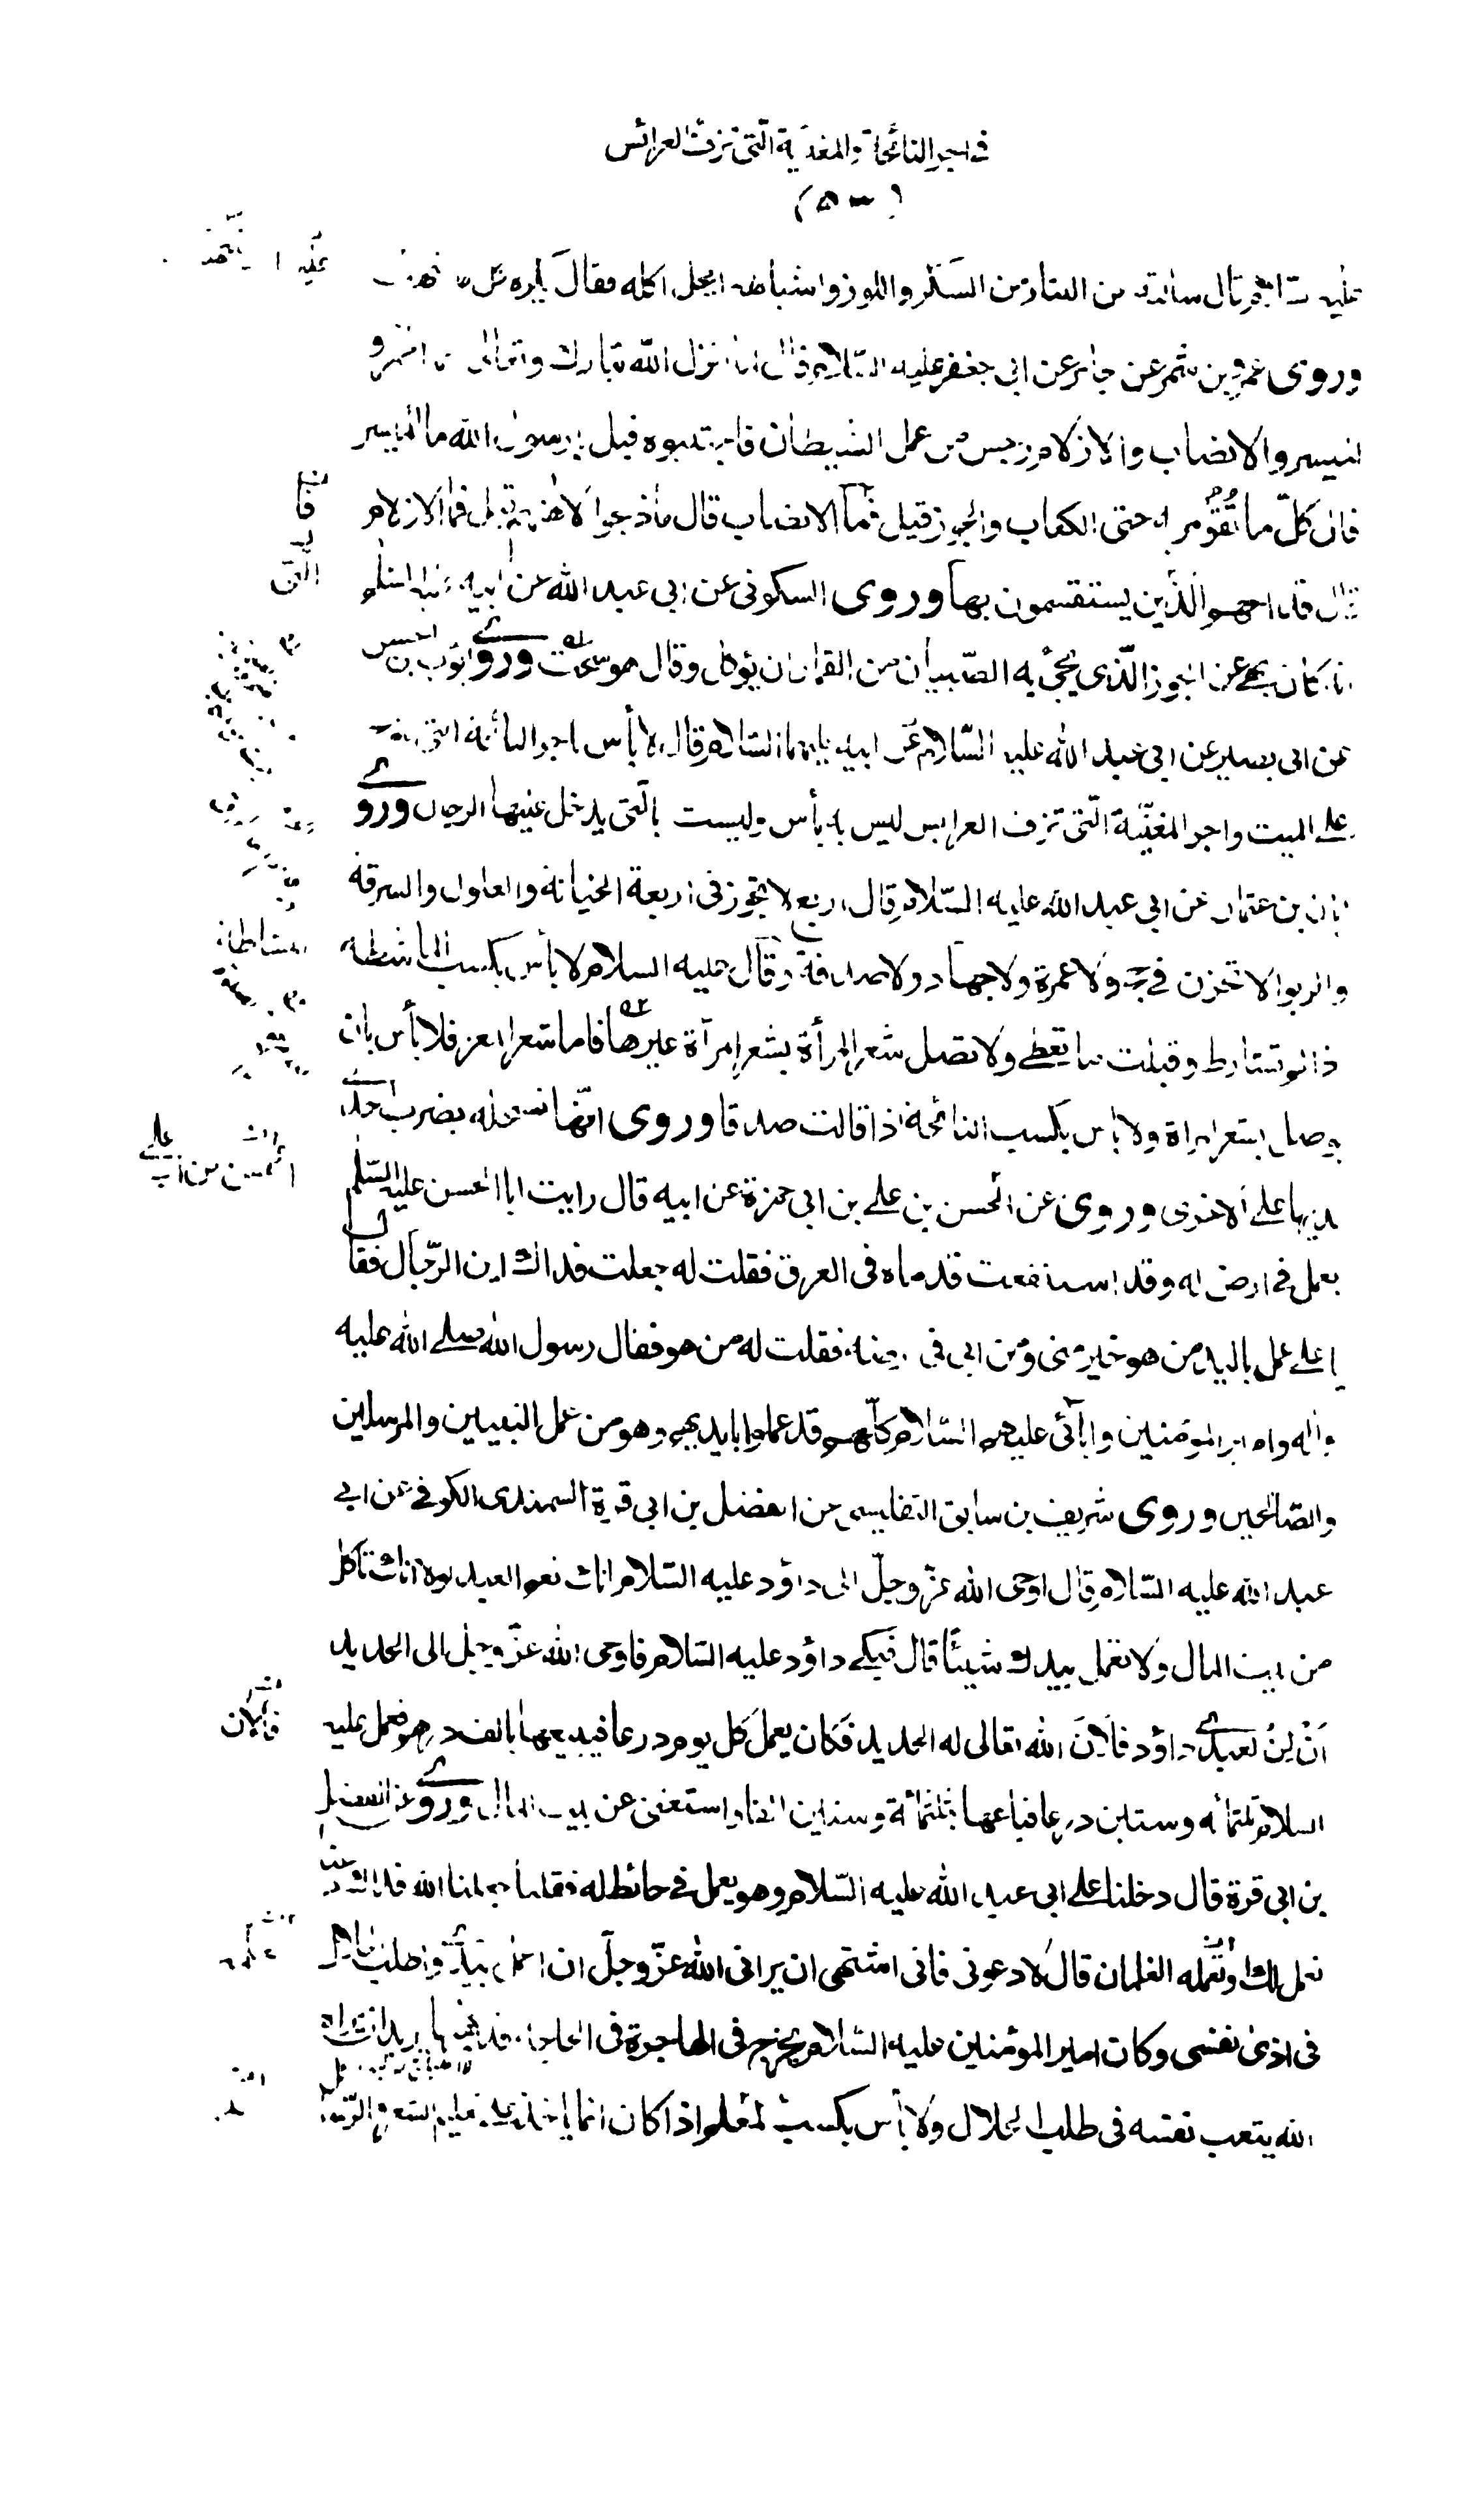 في اجر النائحة والمغنية التي تزف العرائس
(٥٣)
عليه قال سالته من النثار من السكر واللوز واشباهه ايحل اكله فقال يكره كل ما
وروى عمرو بن شمر عن جابر عن ابي جعفر عليه السلام قال لما انزل الله تبارك وتعالى انما الخمر و
الميسر والانصاب والازلام رجس من عمل الشيطان فاجتنبوه قيل يا رسول الله ما الميسر
قال كلّ ما تُقُومر به حتى الكعاب والجوز قيل فما الانصاب قال ما ذبحوا لالهتهم قيل فما الازلام
قال قداحهم الّذين يستقسمون بها وروى السكوني عن ابي عبد الله عن ابيه عليهما السلم
انه كان ينهى عن الجوز الّذي يجئ به الصّبيان من القمار ان يؤكل وقال هو سُحت وروى ايوب بن الحسن
عن ابي بصير عن ابي عبد الله عليه السّلام عن ابيه عليهما السّلام قال لا بأس باجر النائحة التي
على الميت واجر المغنّية الّتي تزف العرايس ليس به بأس وليست بالّتي يدخل عليها الرجال وروى
ابان بن عثمان عن ابي عبد الله عليه السّلام قال اربع لا تجوز في اربعة الخيانة والغلول والسرقة
والربوا لا تجزن في حج ولا عمرة ولا جهاد ولا صدقة وقال عليه السلام لا بأس بكسب الماشطة
اذا لم تشارط وقبلت ما تعطى ولا تصل شعر المرأة بشعر امرأة غيرها فاما شعر المعز فلا بأس بان
يوصل بشعر امراة ولا بأس بكسب النائحة اذا قالت صدقا وروى انّها تستحله بضرب احدى
يديها على الاخرى وروى عن الحسن بن علي بن ابي حمزة عن ابيه قال رايت ابا الحسن عليه السّلم
يعمل في ارض له وقد استنقعت قدماه في العرق فقلت له جعلت فداك اين الرّجال فقال
يا علي عمل باليد من هو خير منى ومن ابي في ارضه فقلت له من هو فقال رسول الله صلى الله عليه
واله وامير المؤمنين وابائى عليهم السّلام كلّهم قد عملوا بايديهم وهو من عمل النبيين والمرسلين
والصّالحين وروى شريف بن سابق التفليسى عن الفضل بن ابي قرة السمندى الكوفي عن ابي
عبد الله عليه السّلام قال اوحى الله عزّ وجلّ الى داؤد عليه السّلام انك نعم العبد لولا انك تأكل
من بيت المال ولا تعمل بيدك شيئًا قال فبكى داؤد عليه السّلام فاوحى الله عزّ وجل الى الحديد
اَنْ لِنْ لعبدى داؤد فاَلانَ الله تعالى له الحديد فكان يعمل كل يوم درعا فيبيعها بالف درهم فعمل عليه
السلام ثلثمائة وستين درعا فباعها بثلثمائة وستين الفا واستغنى عن بيت المال وروى عن الفضل
بن ابي قرة قال دخلنا على ابي عبد الله عليه السّلام وهو يعمل في حائط له فقلنا جعلنا الله فداك دعنا
نعمل لك او تعمله الغلمان قال لا دعونى فانى اشتهى ان يرانى الله عزّ وجلّ ان اعمل بيدى واطلب الحلال
في اذى نفسى وكان امير المؤمنين عليه السّلام يخرج في الهاجرة في الحاجة قد كفيها يريد ان يراه
الله يتعب نفسه في طلب الحلال ولا بأس بكسب المعلم اذا كان انما ياخذ على تعليم الشعر والرسائل
فالان